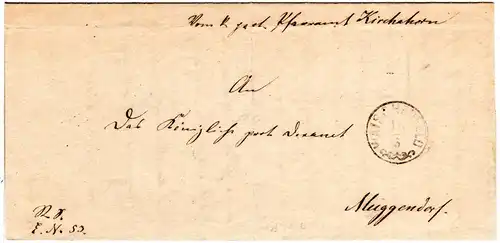 Vom k. prot. Pfarramt Kirchahorn
An
Das Königliche prot. Decanat
Muggendorf.
E. N. 53.